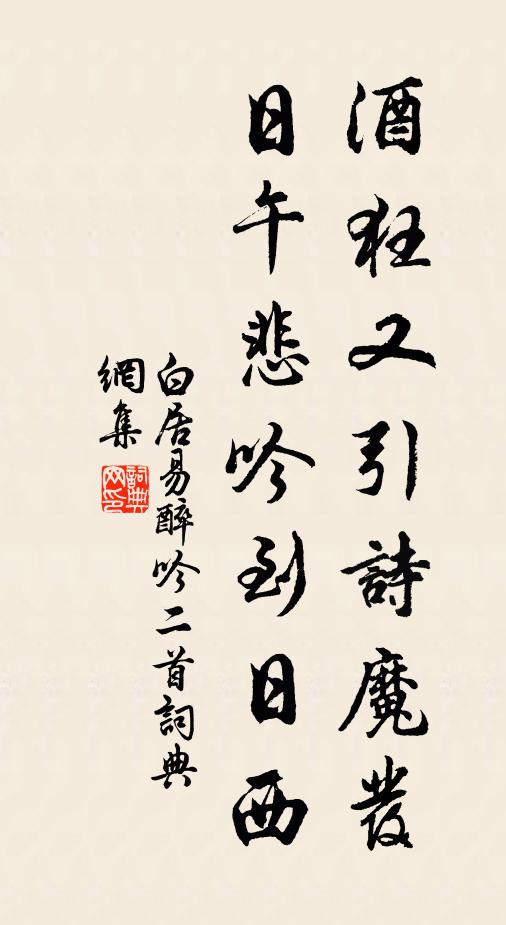 酒狂又引詩魔發
日午悲吟到日西
白居易醉吟二首詞典
網集
詞典
网印